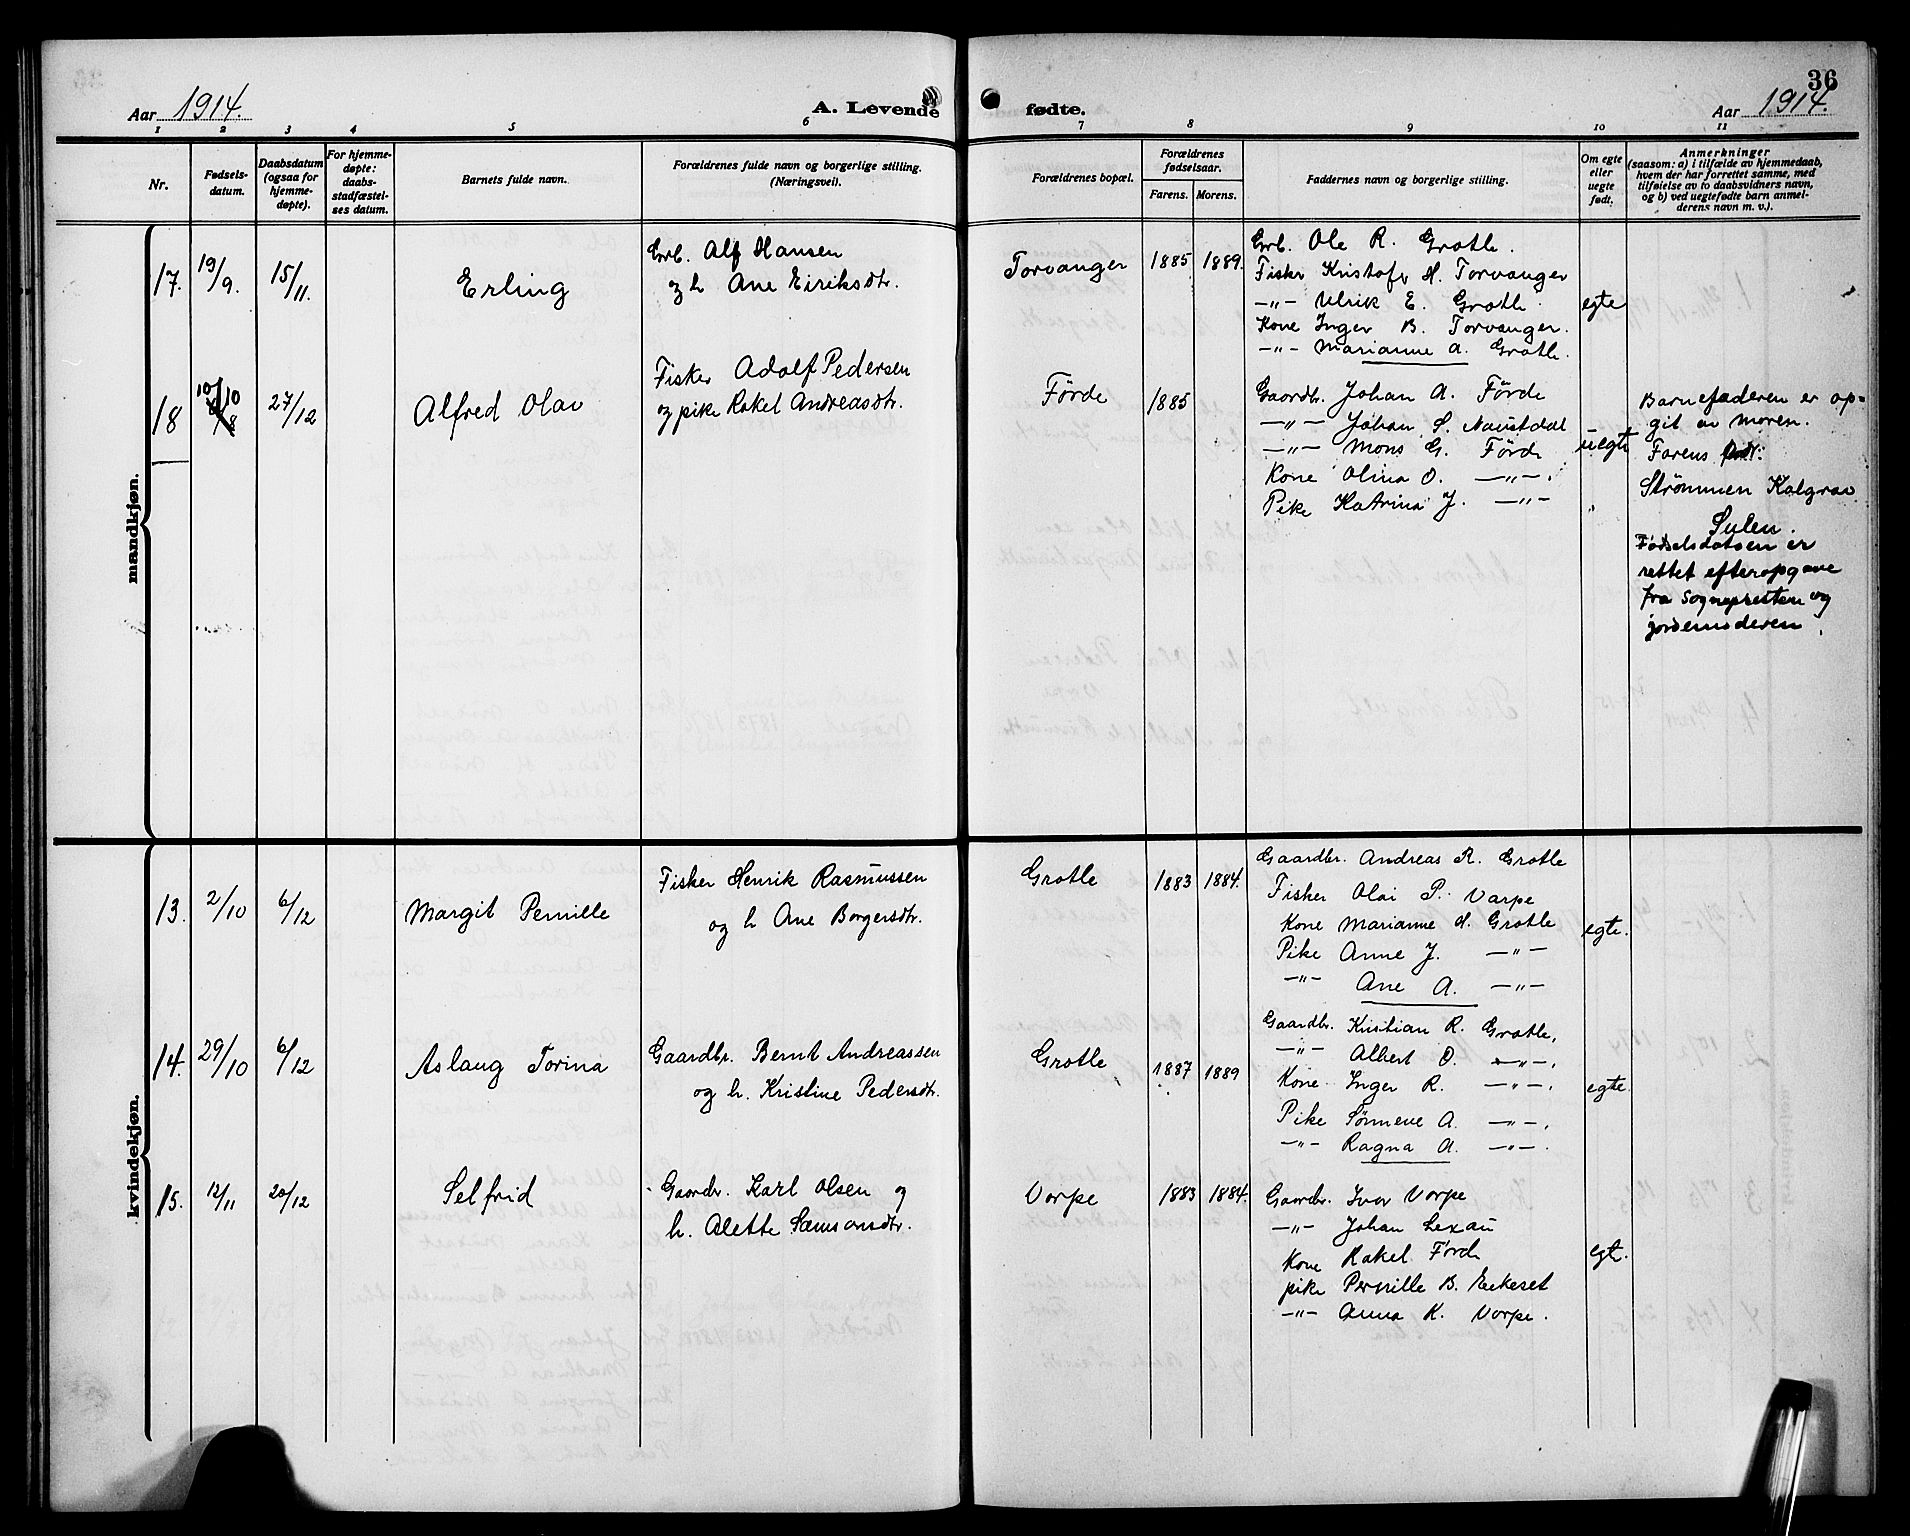 36
Aar 1914.
A. Levende fødte.
Aar 1914.
1 2 3 4 5 6 7 8 9 10 11
Nr.
Fødsels-
datum.
Daabsdatum
(ogsaa for
hjemme-
døpte).
For hjemme-
døpte:
daabs-
stadfæstel-
ses datum.
Barnets fulde navn.
Forældrenes fulde navn og borgerlige stilling.
(Næringsvei).
Forældrenes bopæl.
Forældrenes
fødselsaar.
Farens. Morens.
Faddernes navn og borgerlige stilling.
Om egte
eller
uegte
født.
Anmerkninger
(saasom: a) i tilfælde av hjemmedaab,
hvem der har forrettet samme, med
tilføielse av to daabsvidners navn,
og b) ved uegtefødte barn anmel-
derens navn m. v.).
mandkjøn.
17. 19/9. 15/11. Erling
Grb. Alf Hansen
og h Ane Eiriksdtr.
Torvanger 1885 1889.
Grb. Ole R. Grotle.
Fisker Kristofer H. Torvanger
—„— Ulrik E. Grotle.
Kone Inger B. Torvanger.
—„— Marianne A. Grotle.
egte
18 10/10 27/12 Alfred Olav
Fisker Adolf Pedersen
og pike Rakel Andreasdtr.
Förde 1885
Gaardbr. Johan A. Förde
—„— Johan S. Naustdal
—„— Mons G. Förde
Kone Olina O. —„—.
Pike Katrina J. —„—
uegte
Barnefaderen er op-
git av moren.
Farens
Strömmen Kalgrav
Sulen.
Fødselsdatoen er
rettet efter opgave
fra sognepresten og
jordemoderen.
kvindekjøn.
13. 2/10 6/12 Margit Pernille
Fisker Henrik Rasmussen
og h Ane Borgersdtr.
Grotle 1883 1884.
Gaardbr. Andreas R. Grotle
Fisker Olai P. Varpe
Kone Marianne H. Grotle
Pike Anne J. —„—
—„— Ane A. —„—
egte.
14. 29/10 6/12 Aslaug Torina
Gaardbr. Bernt Andreassen
og h. Kristine Pedersdtr.
Grotle 1887 1889
Gaardbr. Kristian R. Grotle,
—„— Albert O. —„—.
Kone Inger R. —„—.
Pike Sönneve A. —„—.
—„— Ragna A. —„—.
egte.
15. 12/11 20/12 Selfrid
Gaardbr. Karl Olsen og
h. Alette Samsonsdtr.
Vorpe 1883 1884.
Gaardbr. Ivar Vorpe
—„— Johan Lexau
Kone Rakel Förde
pike Pernille B. Eikeset
—„— Anna K. Vorpe.
egte.